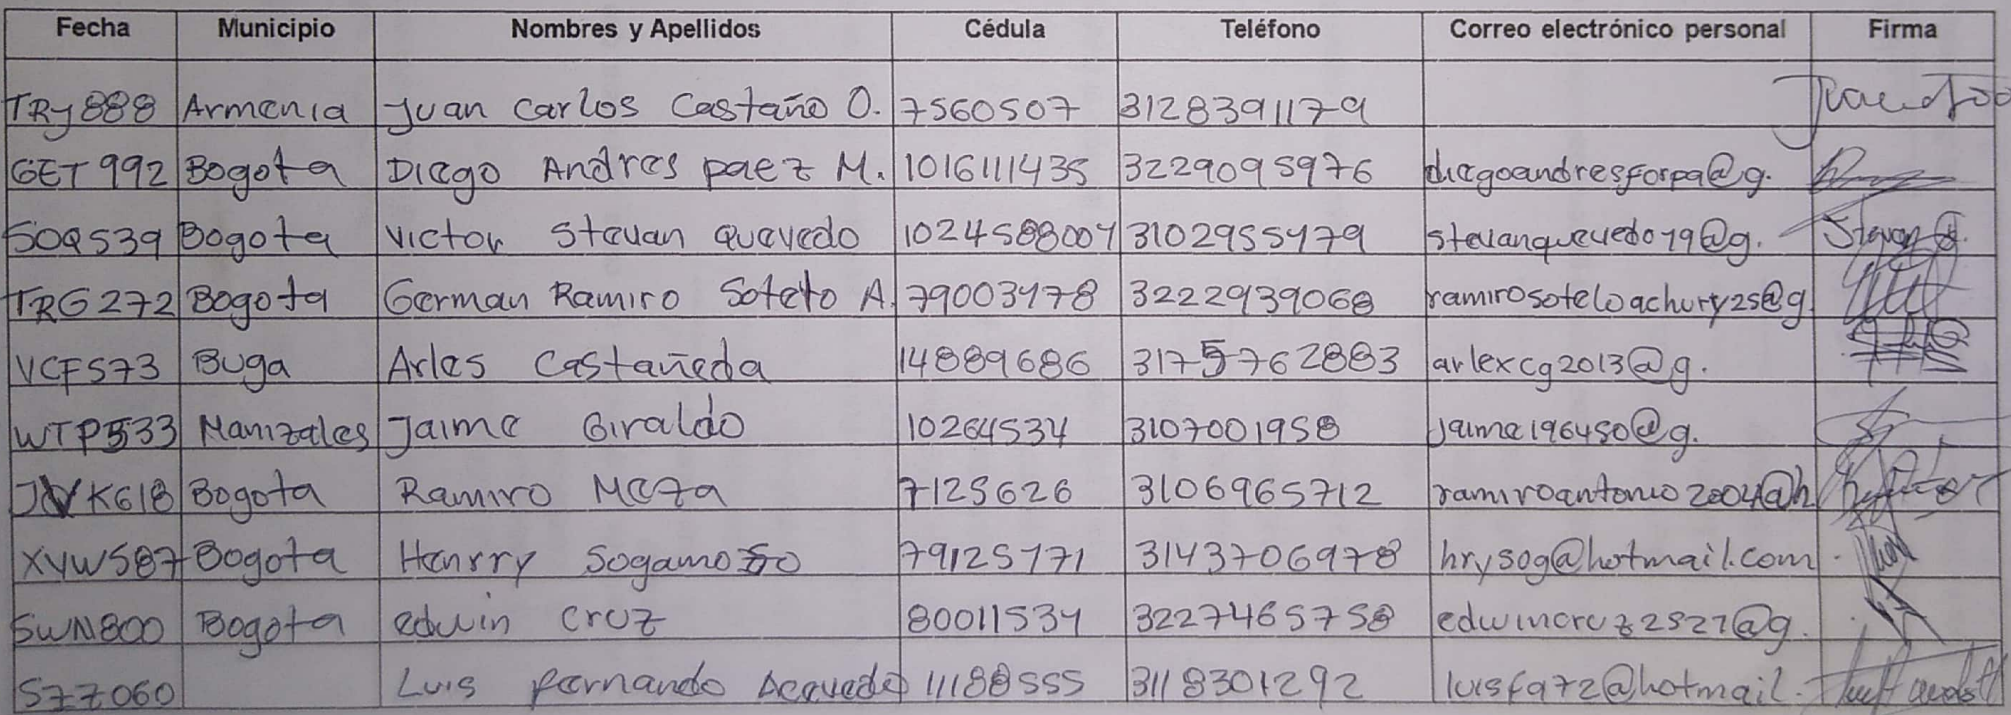 Fecha Municipio Nombres y Apellidos Cédula Teléfono Correo electrónico personal Firma
TRY888 Armenia Juan Carlos Castaño O. 7560507 3128391179
GET992 Bogota Diego Andres paez M. 1016111435 3229095976 diegoandresforpa@g.
SOQ539 Bogota Victor Stevan Quevedo 1024588004 3102955479 stevanquevedo79@g. Stevan Q.
TRG272 Bogota German Ramiro Sotelo A. 79003478 3222939068 ramirosoteloachury25@g
VCF573 Buga Arles Castañeda 14889686 3175762883 arlexcg2013@g.
WTP533 Manizales Jaime Giraldo 10264534 3107001958 jaime196450@g.
K618 Bogota Ramiro Meza 7125626 3106965712 ramiroantonio2004@h
XVW587 Bogota Henrry Sogamoso 79125771 3143706978 hrysog@hotmail.com
SWN800 Bogota edwin cruz 80011534 3227465758 edwincruz2527@g.
SZZ060 Luis fernando Acevedo 11188555 3118301292 luisfa72@hotmail.